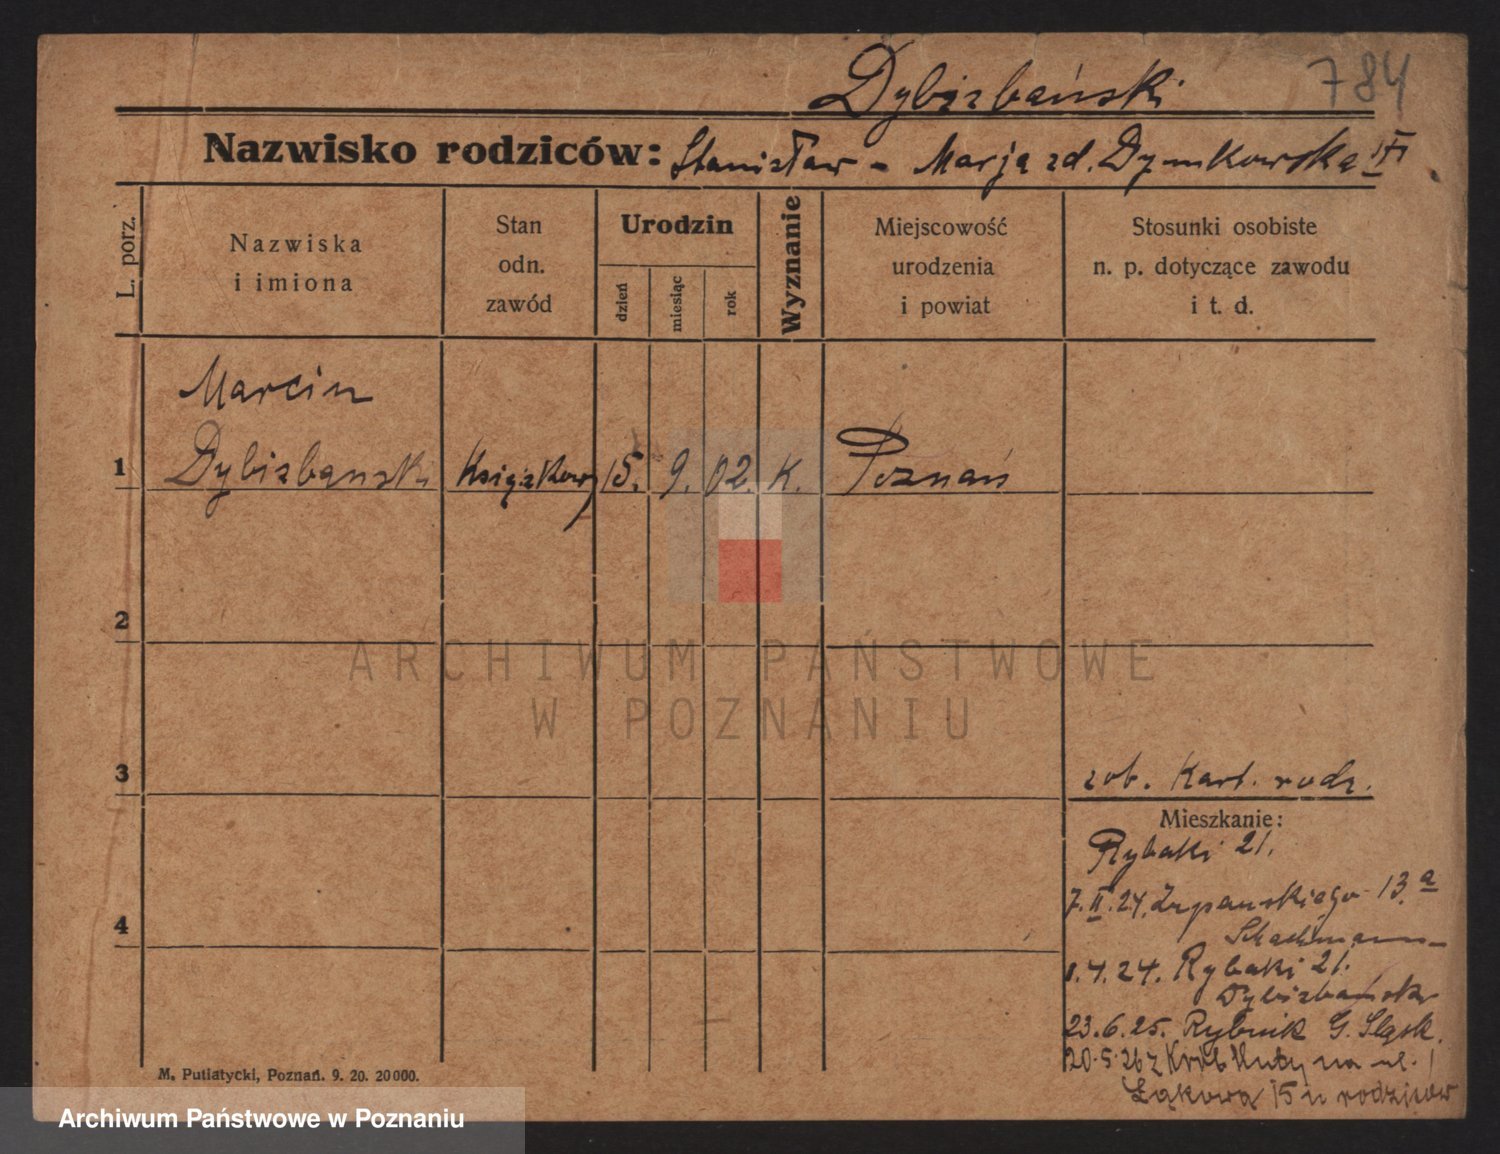 Dybizbański 784
Nazwisko rodziców: Stanisław - Marja zd. Dymkowska
L. porz.
Nazwiska
i imiona
Stan
odn.
zawód
Urodzin
dzień
miesiąc
rok
Wyznanie
Miejscowość
urodzenia
i powiat
Stosunki osobiste
n. p. dotyczące zawodu
i t. d.
Marcin
1 Dybizbański Książkowy 15. 9. 02. K. Poznań
2
ARCHIWUM PAŃSTWOWE
W POZNANIU
3
zob. Kart. rodz.
Mieszkanie:
Rybaki 21.
7.II.24. Żupańskiego 13a
4
Schachmann
1.4.24. Rybaki 21.
Dybizbańska
23.6.25. Rybnik G. Śląsk.
20.5.26 z Król Huty na ul.
Łąkowa 15 u rodziców
M. Putiatycki, Poznań. 9. 20. 20000.
Archiwum Państwowe w Poznaniu